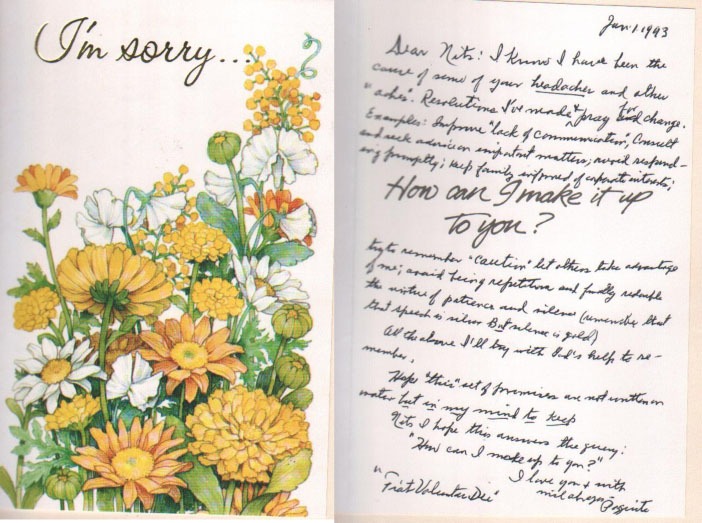 I'm sorry...
Jan 1 1993
Dear Nits: I know I have been the
cause of some of your headaches and other
"aches". Resolutions I've made & pray for change.
Examples: Improve "lack of communication", Consult
and seek advice on important matters; avoid respond-
ing promptly; keep family informed of corporate interests;
How can I make it up
to you?
try to remember "caution" let others take advantage
of me; avoid being repetitive and finally redouble
the virtue of patience and silence (remember that
that speech is silver But silence is gold)
All the above I'll try with God's help to re-
member.
Hope "this" set of promises are not written on
water but in my mind to keep
Nits I hope this answers the query:
"How can I make up to you?"
I love you & with
mil abrazos
"Fiat Voluntas Dei"